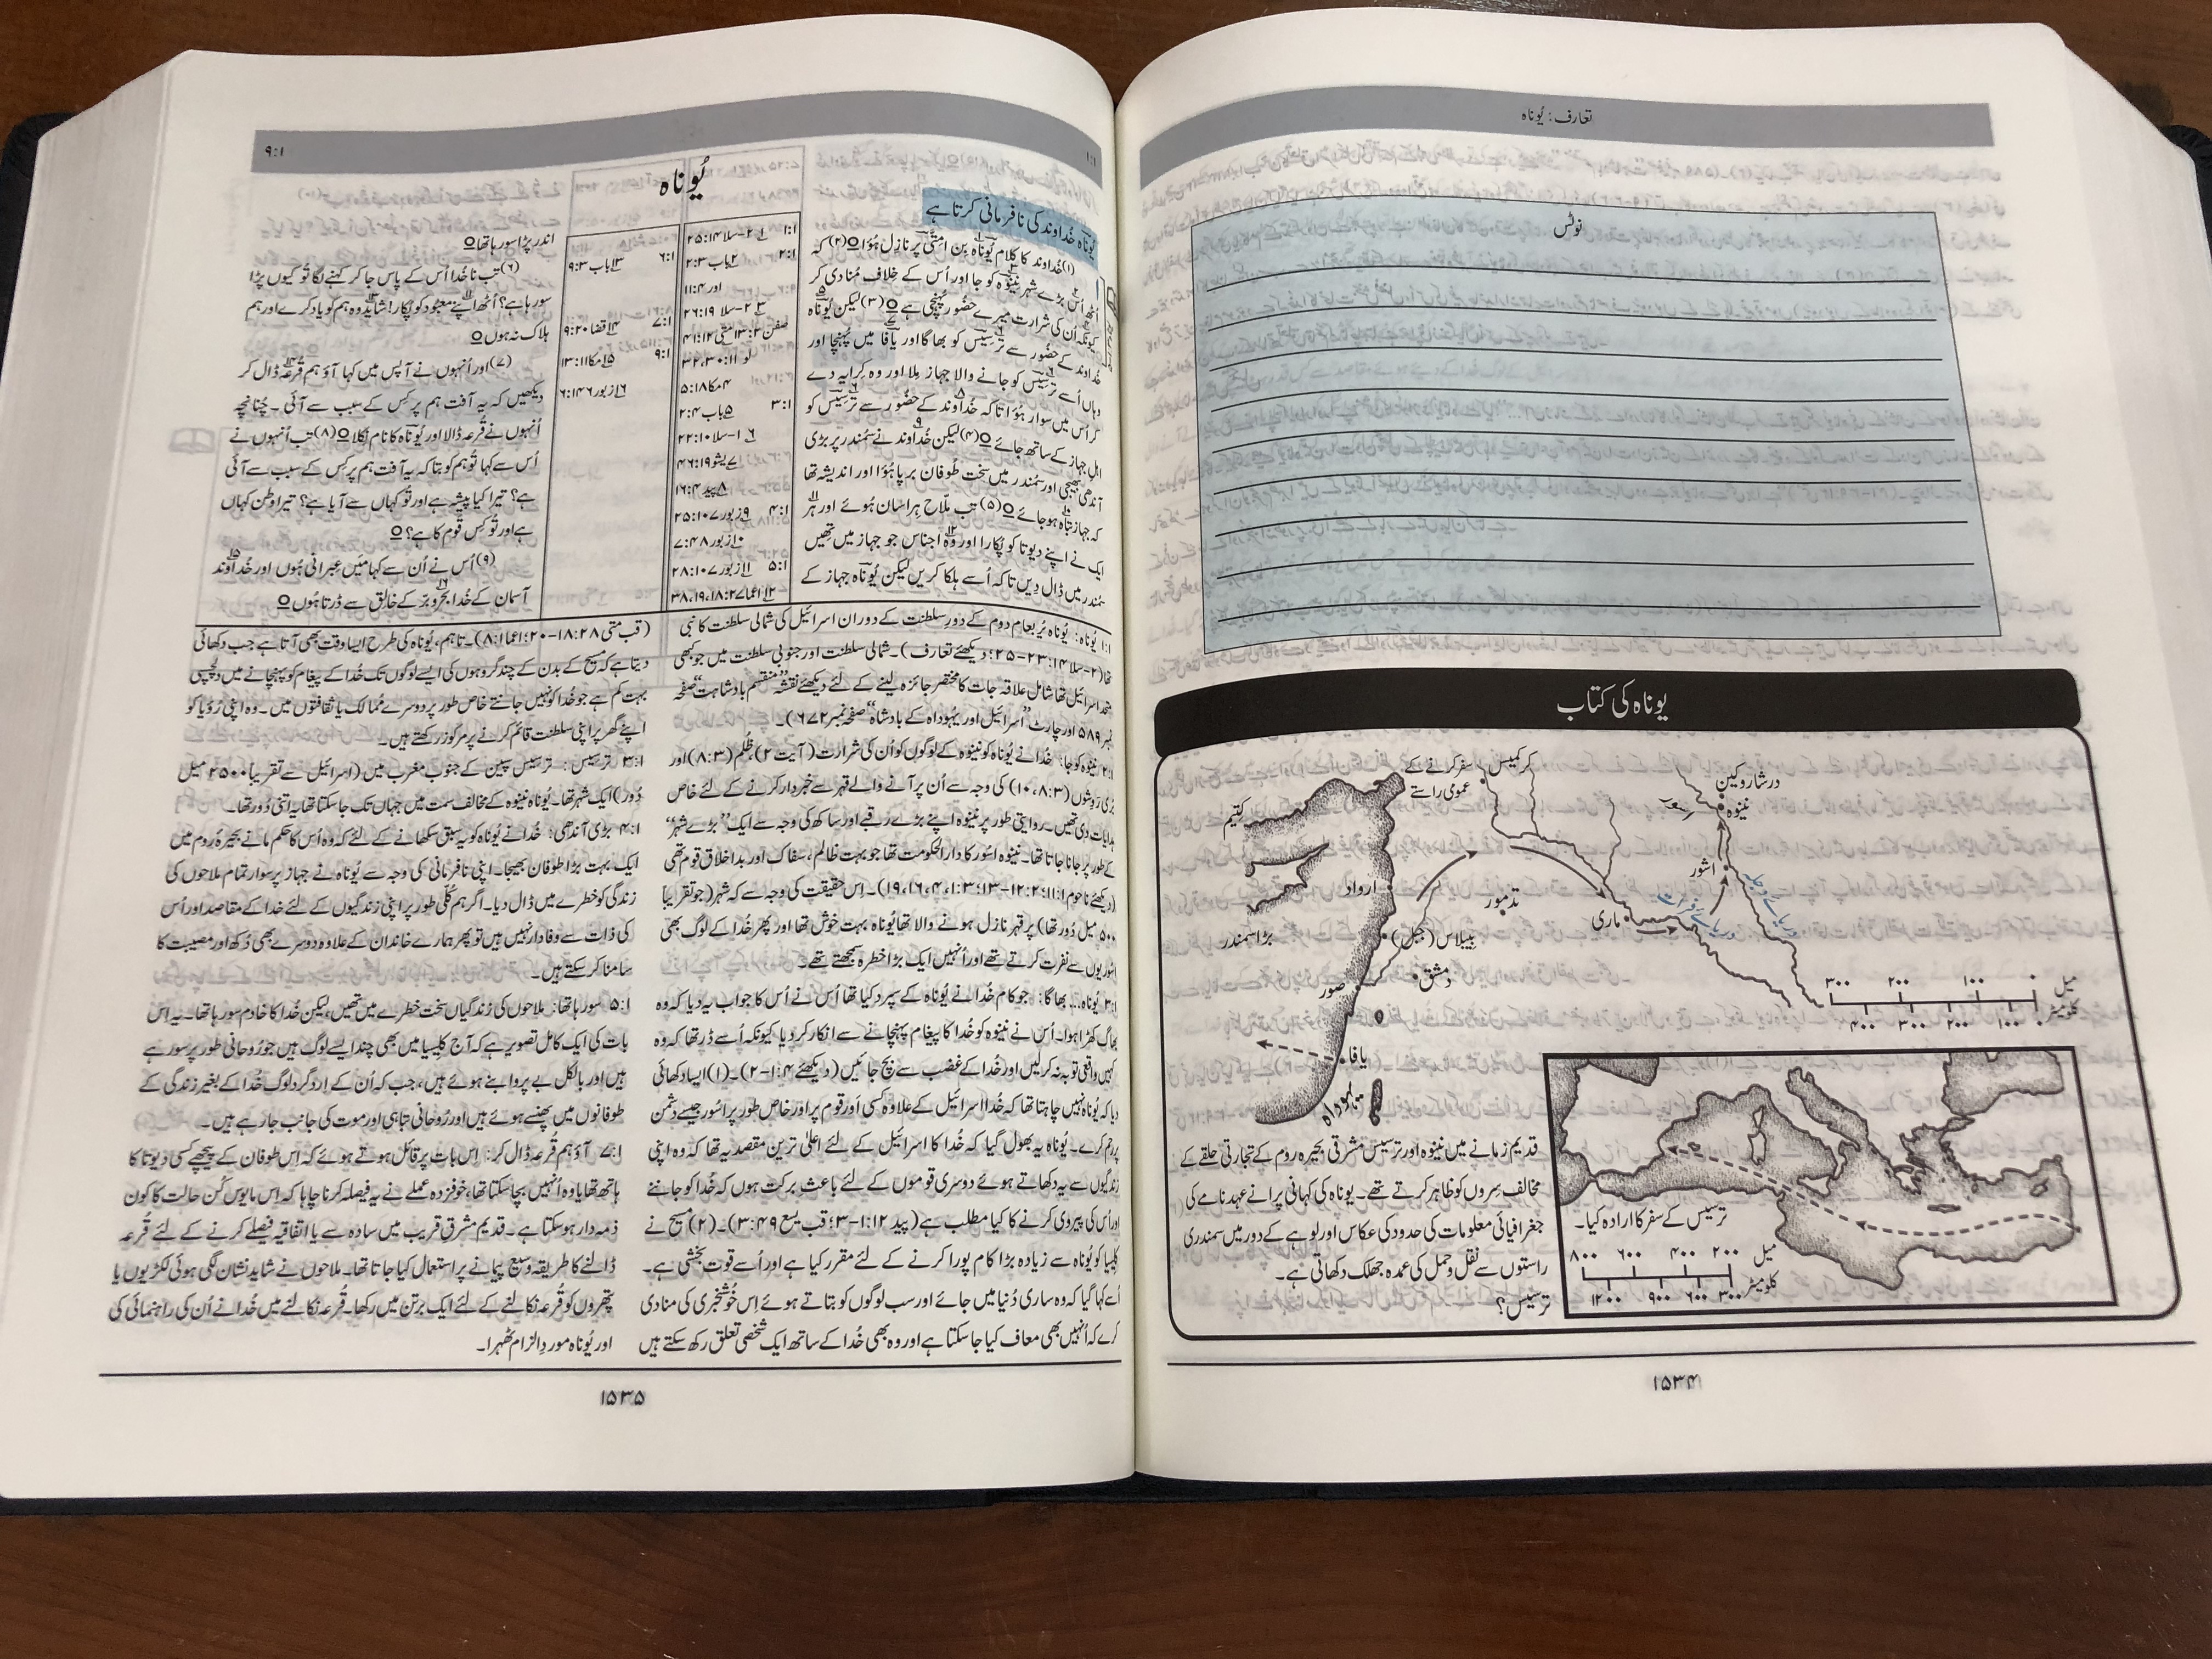 تعارف: یُوناہ
نوٹس
یوناہ کی کتاب
کرکمیس
سفر کرنے کے
عمومی راستے
درشاروکین
نینوہ
کِتیم
اشور
ارواد
تدمور
ماری
دریائے فرات
بڑا سمندر
بیبلاس (جبل)
دمشق
صور
یافا
یہوداہ
۳۰۰ ۲۰۰ ۱۰۰ ۰ میل
۴۰۰ ۳۰۰ ۲۰۰ ۱۰۰ ۰ کلومیٹر
قدیم زمانے میں نینوہ اور ترسیس مشرقی بحیرہ روم کے تجارتی حلقے کے
مخالف سِروں کو ظاہر کرتے تھے۔ یوناہ کی کہانی پرانے عہدنامے کی
جغرافیائی معلومات کی حدود کی عکاس اور لوہے کے دور میں سمندری
راستوں سے نقل وحمل کی عمدہ جھلک دکھاتی ہے۔
ترسیس؟
ترسیس کے سفر کا ارادہ کیا۔
۸۰۰ ۶۰۰ ۴۰۰ ۲۰۰ میل
۱۲۰۰ ۹۰۰ ۶۰۰ ۳۰۰ کلومیٹر
۱۵۳۴
۱:۱
۹:۱
یُوناہ
یُوناہ خُداوند کی نافرمانی کرتا ہے
(۱) خُداوند کا کلام یُوناہ بِن امتّی پر نازِل ہُؤا ۝ (۲) کہ
اُٹھ اُس بڑے شہر نینوؔہ کو جا اور اُس کے خلاف مُنادی کر
کیونکہ اُن کی شرارت میرے حضُور پُہنچی ہے ۝ (۳) لیکن یُوناہ
خُداوند کے حضُور سے ترسِیس کو بھاگا اور یافا میں پُہنچا اور
وہاں اُسے ترسِیس کو جانے والا جہاز مِلا اور وہ کِرایہ دے
کر اُس میں سوار ہُؤا تاکہ خُداوند کے حضُور سے ترسِیس کو
اہلِ جہاز کے ساتھ جائے ۝ (۴) لیکن خُداوند نے سمُندر پر بڑی
آندھی بھیجی اور سمُندر میں سخت طُوفان برپا ہُؤا اور اندیشہ تھا
کہ جہاز تباہ ہو جائے ۝ (۵) تب ملّاح ہراسان ہُوئے اور ہر
ایک نے اپنے دیوتا کو پُکارا اور وہ اجناس جو جہاز میں تھیں
سمُندر میں ڈال دِیں تاکہ اُسے ہلکا کریں لیکن یُوناہ جہاز کے
۱:۱ ۱ ۲-سلا ۲۵:۱۴
۲:۱ ۲ باب ۲:۳
اور ۱۱:۴
۳ ۲-سلا ۳۶:۱۹
صفن ۱۳:۲ متی ۴۱:۱۲
لو ۳۲،۳۰:۱۱
۴ مکا ۵:۱۸
۳:۱ ۵ باب ۲:۴
۶ ۱-سلا ۲۲:۱۰
۷ یشو ۴۶:۱۹
۸ پید ۱۶:۴
۴:۱ ۹ زبور ۲۵:۱۰۷
۱۰ زبور ۷:۴۸
۵:۱ ۱۱ زبور ۲۸:۱۰۷
۱۲ اعما ۳۸،۱۹،۱۸:۲۷
۶:۱ ۱۳ باب ۹:۳
۷:۱ ۱۴ قضا ۹:۲۰
۹:۱ ۱۵ مکا ۱۳:۱۱
۱۶ زبور ۶:۱۴۶
اندر پڑا سو رہا تھا ۝
(۶) تب ناخُدا اُس کے پاس جا کر کہنے لگا تُو کیوں پڑا
سو رہا ہے؟ اُٹھ اپنے معبُود کو پُکار! شاید وہ ہم کو یاد کرے اور ہم
ہلاک نہ ہوں ۝
(۷) اور اُنہوں نے آپس میں کہا آؤ ہم قُرعہ ڈال کر
دیکھیں کہ یہ آفت ہم پر کِس کے سبب سے آئی۔ چُنانچہ
اُنہوں نے قُرعہ ڈالا اور یُوناہ کا نام نِکلا ۝ (۸) تب اُنہوں نے
اُس سے کہا تُو ہم کو بتا کہ یہ آفت ہم پر کِس کے سبب سے آئی
ہے؟ تیرا کیا پیشہ ہے اور تُو کہاں سے آیا ہے؟ تیرا وطن کہاں
ہے اور تُو کِس قَوم کا ہے؟ ۝
(۹) اُس نے اُن سے کہا مَیں عِبرانی ہُوں اور خُداوند
آسمان کے خُدا بحر و برّ کے خالِق سے ڈرتا ہُوں ۝
۱:۱ یُوناہ: یُوناہ یُربعام دوم کے دورِ سلطنت کے دوران اسرائیل کی شمالی سلطنت کا نبی
تھا (۲-سلا ۲۳:۱۴-۲۵؛ دیکھئے تعارف)۔ شمالی سلطنت اور جنوبی سلطنت میں جو بھی
متحد اسرائیل تھا شامل علاقہ جات کا مختصر جائزہ لینے کے لئے دیکھئے نقشہ ”منقسم بادشاہت“ صفحہ
نمبر ۵۸۹ اور چارٹ ”اسرائیل اور یہُوداہ کے بادشاہ“ صفحہ نمبر ۶۷۲)۔
۲:۱ نینوہ کو جا: خُدا نے یُوناہ کو نینوہ کے لوگوں کو اُن کی شرارت (آیت ۲)، ظُلم (۸:۳) اور
بُری رَوشوں (۱۰،۸:۳) کی وجہ سے اُن پر آنے والے قہر سے خبردار کرنے کے لئے خاص
ہدایات دی تھیں۔ روایتی طور پر نینوہ اپنے بڑے رقبے اور ساکھ کی وجہ سے ایک ”بڑے شہر“
کے طور پر جانا جاتا تھا۔ نینوہ اسُور کا دارالحکومت تھا جو بہت ظالم، سفاک اور بداخلاق قوم تھی
(دیکھئے ناحوم ۱۱:۱؛ ۱۲:۲-۱۳؛ ۱:۳، ۴، ۱۶، ۱۹)۔ اِس حقیقت کی وجہ سے کہ شہر (جو تقریباً
۵۰۰ میل دُور تھا) پر قہر نازل ہونے والا تھا یُوناہ بہت خوش تھا اور پھر خُدا کے لوگ بھی
اسُوریوں سے نفرت کرتے تھے اور اُنہیں ایک بڑا خطرہ سمجھتے تھے۔
۳:۱ یُوناہ... بھاگا: جو کام خُدا نے یُوناہ کے سپرد کیا تھا اُس نے اُس کا جواب یہ دیا کہ وہ
بھاگ کھڑا ہوا۔ اُس نے نینوہ کو خُدا کا پیغام پہنچانے سے انکار کر دیا کیونکہ اُسے ڈر تھا کہ وہ
کہیں واقعی توبہ نہ کر لیں اور خُدا کے غضب سے بچ جائیں (دیکھئے ۱:۴-۲)۔ (۱) ایسا دکھائی
دیا کہ یُوناہ نہیں چاہتا تھا کہ خُدا اسرائیل کے علاوہ کسی اَور قوم پر اور خاص طور پر اسُور جیسے دُشمن
پر رحم کرے۔ یُوناہ یہ بھول گیا کہ خُدا کا اسرائیل کے لئے اعلیٰ ترین مقصد یہ تھا کہ وہ اپنی
زندگیوں سے یہ دکھاتے ہوئے دوسری قوموں کے لئے باعث برکت ہوں کہ خُدا کو جاننے
اور اُس کی پیروی کرنے کا کیا مطلب ہے (پید ۱:۱۲-۳؛ قب یسع ۳:۴۹)۔ (۲) مسیح نے
کلیسیا کو یُوناہ سے زیادہ بڑا کام پورا کرنے کے لئے مقرر کیا ہے اور اُسے قوت بخشی ہے۔
اُسے کہا گیا کہ وہ ساری دُنیا میں جائے اور سب لوگوں کو بتاتے ہوئے اِس خُوشخبری کی منادی
کرے کہ اُنہیں بھی معاف کیا جا سکتا ہے اور وہ بھی خُدا کے ساتھ ایک شخصی تعلق رکھ سکتے ہیں
(قب متی ۱۸:۲۸-۲۰؛ اعما ۸:۱)۔ تاہم، یُوناہ کی طرح ایسا وقت بھی آتا ہے جب دکھائی
دیتا ہے کہ مسیح کے بدن کے چند گروہوں کی ایسے لوگوں تک خُدا کے پیغام کو پہنچانے میں دلچسپی
بہت کم ہے جو خُدا کو نہیں جانتے خاص طور پر دوسرے مُمالک یا ثقافتوں میں۔ وہ اپنی رُؤیا کو
اپنے گھر پر اپنی سلطنت قائم کرنے پر مرکوز رکھتے ہیں۔
۳:۱ ترسیس: ترسیس سپین کے جنوب مغرب میں (اسرائیل سے تقریباً ۲۵۰۰ میل
دُور) ایک شہر تھا۔ یُوناہ نینوہ کے مخالف سمت میں جہاں تک جا سکتا تھا یہ اتنی دُور تھا۔
۴:۱ بڑی آندھی: خُدا نے یُوناہ کو یہ سبق سکھانے کے لئے کہ وہ اُس کا حکم مانے بحیرۂ رُوم میں
ایک بہت بڑا طوفان بھیجا۔ اپنی نافرمانی کی وجہ سے یُوناہ نے جہاز پر سوار تمام ملاحوں کی
زندگی کو خطرے میں ڈال دیا۔ اگر ہم کُلّی طور پر اپنی زندگیوں کے لئے خدا کے مقاصد اور اُس
کی ذات سے وفادار نہیں ہیں تو پھر ہمارے خاندان کے علاوہ دوسرے بھی دُکھ اور مصیبت کا
سامنا کر سکتے ہیں۔
۵:۱ سو رہا تھا: ملاحوں کی زندگیاں سخت خطرے میں تھیں، لیکن خُدا کا خادم سو رہا تھا۔ یہ اس
بات کی ایک کامل تصویر ہے کہ آج کلیسیا میں بھی چند ایسے لوگ ہیں جو رُوحانی طور پر سو رہے
ہیں اور بالکل بے پروا بنے ہوئے ہیں، جب کہ اُن کے اِردگرد لوگ خُدا کے بغیر زندگی کے
طوفانوں میں پھنسے ہوئے ہیں اور رُوحانی تباہی اور موت کی جانب جا رہے ہیں۔
۷:۱ آؤ ہم قُرعہ ڈال کر: اِس بات پر قائل ہوتے ہوئے کہ اِس طوفان کے پیچھے کسی دیوتا کا
ہاتھ تھا یا وہ اُنہیں بچا سکتا تھا، خوفزدہ عملے نے یہ فیصلہ کرنا چاہا کہ اِس مایوس کُن حالت کا کون
ذمہ دار ہو سکتا ہے۔ قدیم مشرقِ قریب میں سادہ سے یا اتفاقیہ فیصلے کرنے کے لئے قُرعہ
ڈالنے کا طریقہ وسیع پیمانے پر استعمال کیا جاتا تھا۔ ملاحوں نے شاید نشان لگی ہوئی لکڑیوں یا
پتھروں کو قُرعہ نکالنے کے لئے ایک برتن میں رکھا۔ قُرعہ نکالنے میں خُدا نے اُن کی راہنمائی کی
اور یُوناہ موردِ الزام ٹھہرا۔
۱۵۳۵